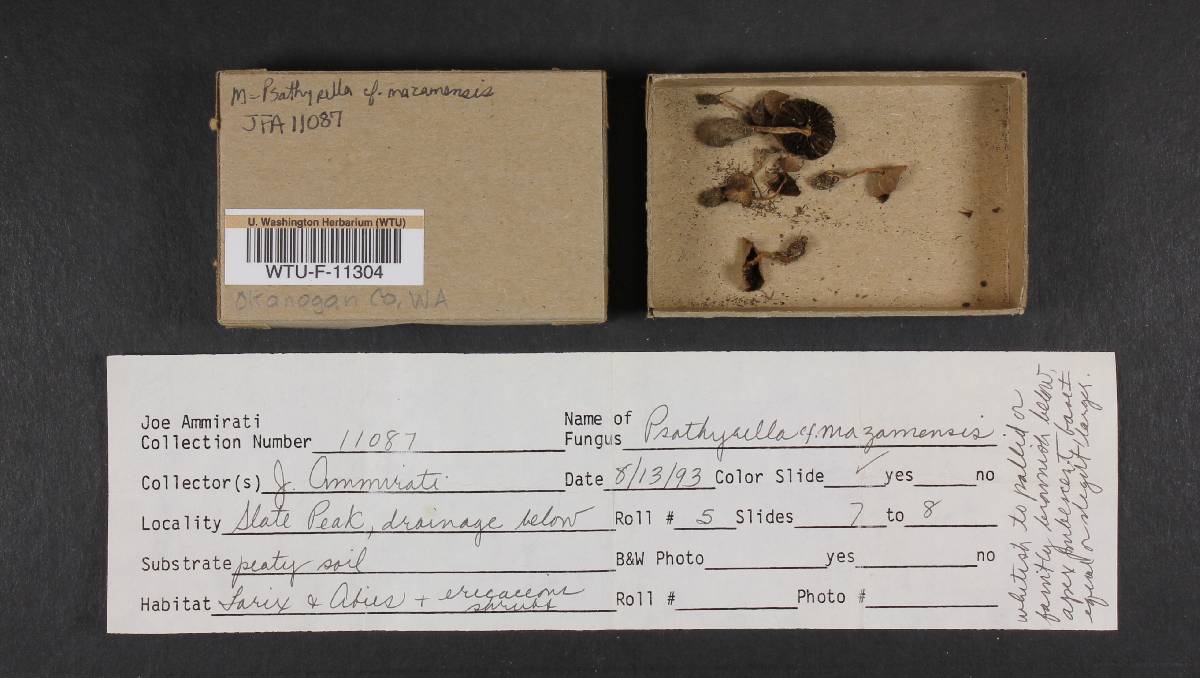 M= Psathyrella cf. mazamensis
JFA 11087
U. Washington Herbarium (WTU)
WTU-F-11304
Okanogan Co, WA
Joe Ammirati
Collection Number 11087
Name of Fungus Psathyrella cf. mazamensis
Collector(s) J. Ammirati
Date 8/13/93 Color Slide ✓ yes no
Locality Slate Peak, drainage below
Roll # 5 Slides 7 to 8
Substrate peaty soil
B&W Photo yes no
Habitat Larix & Abies + ericaceous shrubs
Roll # Photo #
whitish to pallid or
faintly brownish below,
apex pubenest base
equal or slightly larger.